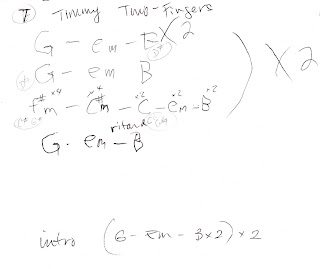 Timmy Two-Fingers
G - em - B x 2
G - em B
f#m x4 - C#m x4 - C x2 - em x2 - B x2
ritand
G - em - B
x 2
intro (G - em - B x 2) x 2